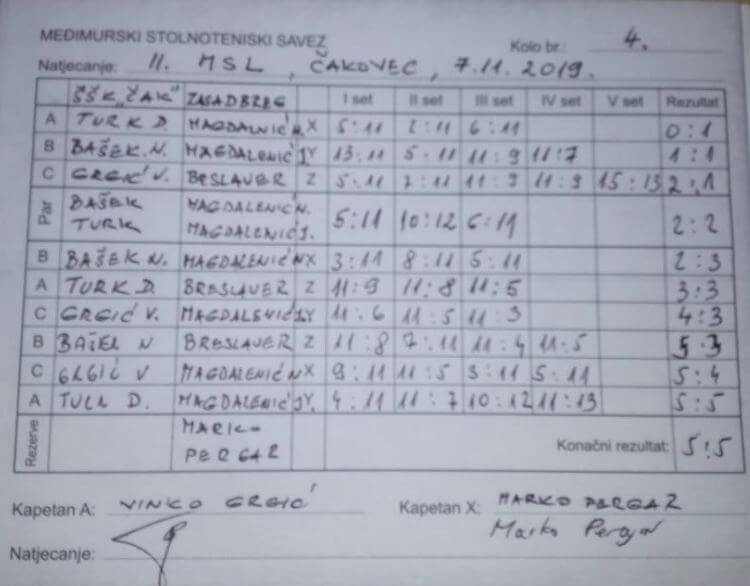 MEĐIMURSKI STOLNOTENISKI SAVEZ
Kolo br.: 4.
Natjecanje: II. MSL, ČAKOVEC, 7.11.2019.
ŠŠK „ČAK" ZASADBREG I set II set III set IV set V set Rezultat
A TURK D. MAGDALENIĆ N. X 5:11 2:11 6:11 0:1
B BAŠEK N. MAGDALENIĆ J. Y 13:11 5:11 11:9 11:7 1:1
C GRGIĆ V. BRESLAUER Z 5:11 7:11 11:9 11:9 15:13 2:1
Par BAŠEK MAGDALENIĆ N.
TURK MAGDALENIĆ J. 5:11 10:12 6:11 2:2
B BAŠEK N. MAGDALENIĆ N X 3:11 8:11 5:11 2:3
A TURK D. BRESLAUER Z 11:9 11:8 11:5 3:3
C GRGIĆ V. MAGDALENIĆ J. Y 11:6 11:5 11:3 4:3
B BAŠEK N BRESLAUER Z 11:8 7:11 11:4 11:5 5:3
C GRGIĆ V MAGDALENIĆ N X 9:11 11:5 3:11 5:11 5:4
A TURK D. MAGDALENIĆ J Y. 4:11 11:7 10:12 11:13 5:5
Rezerve MARKO
PERGAR Konačni rezultat: 5:5
Kapetan A: VINKO GRGIĆ Kapetan X: MARKO PERGAR
Marko Pergar
Natjecanje: